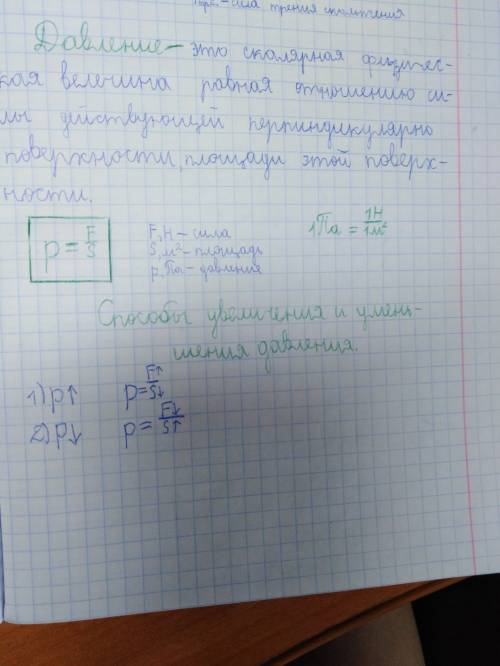 Fтр.ск. – сила трения скольжения
Давление – это скалярная физичес-
кая величина равная отношению си-
лы действующей перпиндикулярно
поверхности, площади этой поверх-
ности.
p = F/S
F, Н – сила
S, м² – площадь
p, Па – давление
1Па = 1Н/1м²
Способы увеличения и умень-
шения давления.
1) p↑ p = F↑/S↓
2) p↓ p = F↓/S↑